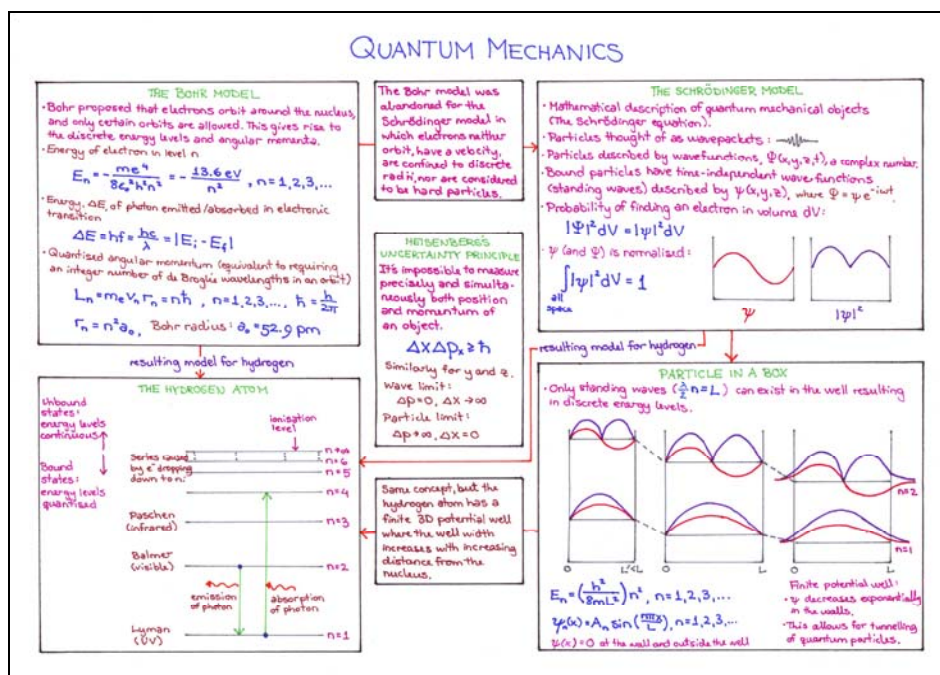 QUANTUM MECHANICS
THE BOHR MODEL
· Bohr proposed that electrons orbit around the nucleus,
and only certain orbits are allowed. This gives rise to
the discrete energy levels and angular momenta.
· Energy of electron in level n
Eₙ = - me⁴/8ε₀²h²n² = - 13.6 eV/n² , n=1,2,3,...
· Energy, ΔE, of photon emitted/absorbed in electronic
transition
ΔE = hf = hc/λ = |Eᵢ - E_f|
· Quantised angular momentum (equivalent to requiring
an integer number of de Broglie wavelengths in an orbit)
Lₙ = mₑvₙrₙ = nħ , n=1,2,3,... ħ = h/2π
rₙ = n²a₀, Bohr radius: a₀ = 52.9 pm
resulting model for hydrogen
The Bohr model was
abandoned for the
Schrödinger model in
which electrons neither
orbit, have a velocity,
are confined to discrete
radii, nor are considered
to be hard particles.
HEISENBERG'S
UNCERTAINTY PRINCIPLE
It's impossible to measure
precisely and simulta-
neously both position
and momentum of
an object.
ΔxΔpₓ ≥ ħ
Similarly for y and z.
Wave limit:
Δp=0, Δx→∞
Particle limit:
Δp→∞, Δx=0
THE SCHRÖDINGER MODEL
· Mathematical description of quantum mechanical objects
(The Schrödinger equation).
· Particles thought of as wavepackets :
· Particles described by wavefunctions, Ψ(x,y,z,t), a complex number.
· Bound particles have time-independent wave functions
(standing waves) described by ψ(x,y,z), where Ψ = ψe^-iωt
· Probability of finding an electron in volume dV:
|Ψ|²dV = |ψ|²dV
· ψ (and Ψ) is normalised:
∫|ψ|²dV = 1
all
space
ψ
|ψ|²
resulting model for hydrogen
THE HYDROGEN ATOM
Unbound
states:
energy levels
continuous
Bound
states:
energy levels
quantised
ionisation
level
Series caused
by e⁻ dropping
down to n:
n→∞
n=6
n=5
n=4
Paschen
(infrared)
n=3
Balmer
(visible)
n=2
emission
of photon
absorption
of photon
Lyman
(UV)
n=1
Same concept, but the
hydrogen atom has a
finite 3D potential well
where the well width
increases with increasing
distance from the
nucleus.
PARTICLE IN A BOX
· Only standing waves (λ/2 n = L) can exist in the well resulting
in discrete energy levels.
n=2
n=1
0 L'<L 0 L 0 L
Eₙ = (h²/8mL²) n², n=1,2,3,...
ψₙ(x) = Aₙ sin(nπx/L), n=1,2,3,...
ψ(x)=0 at the wall and outside the well
Finite potential well:
· ψ decreases exponentially
in the walls.
· This allows for tunnelling
of quantum particles.